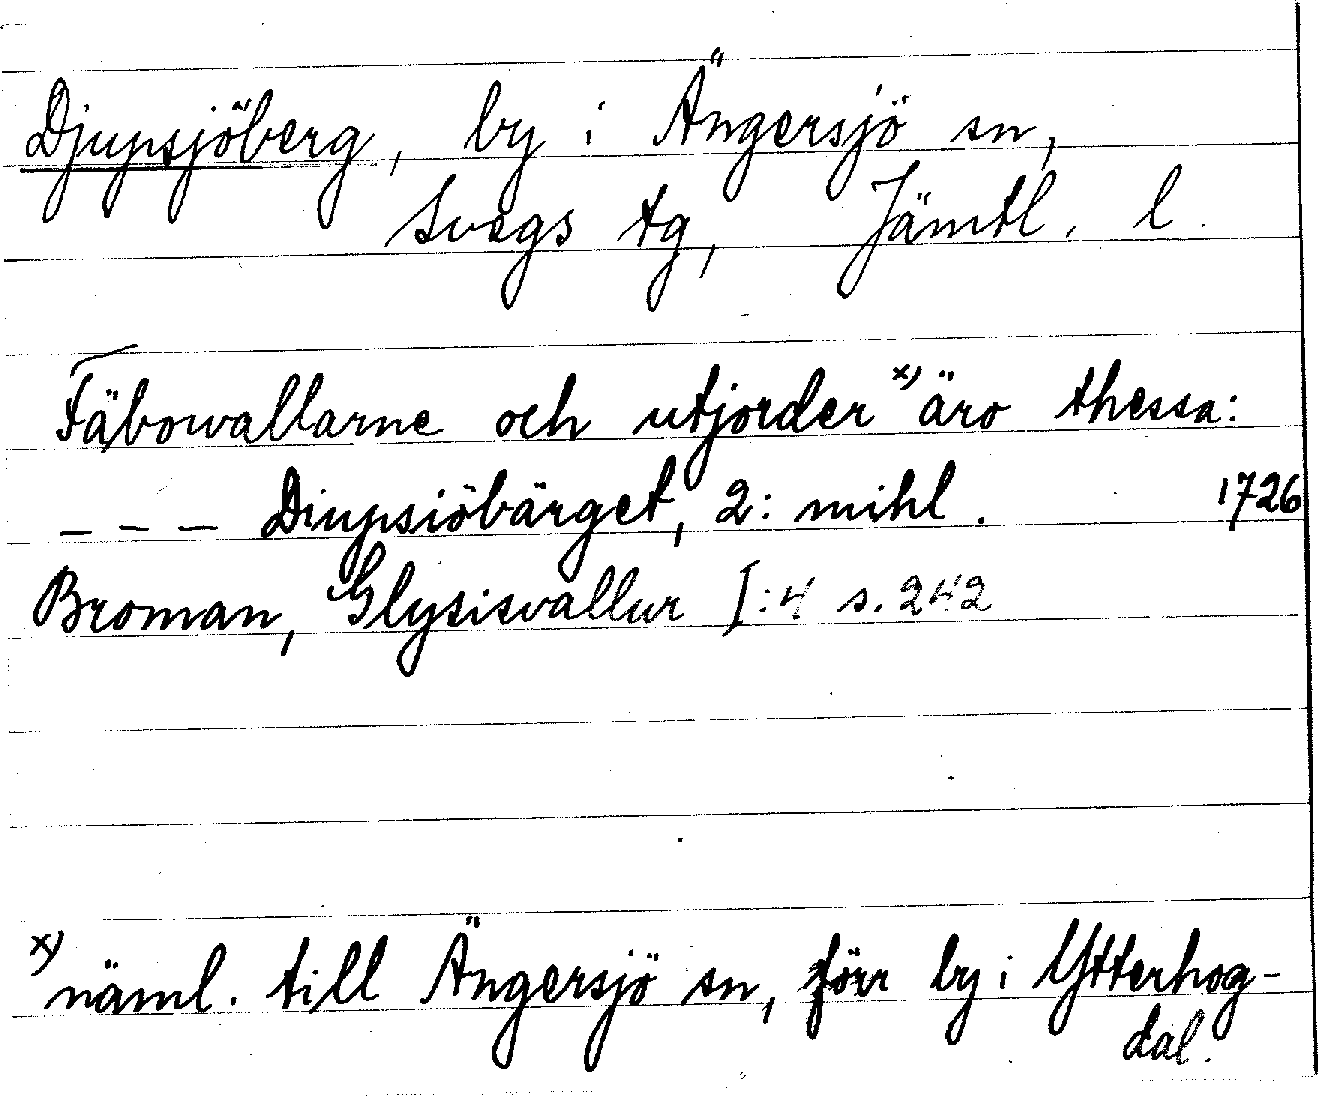 Djupsjöberg, by i Ängersjö sn,
Svegs tg, Jämtl. l.
Fäbowallarne och utjorder x) äro thessa:
- - - Diupsiöbärget, 2: mihl. 1726
Broman, Glysisvallur I:4 s. 242
x) näml. till Ängersjö sn, förr by i Ytterhog-
dal.